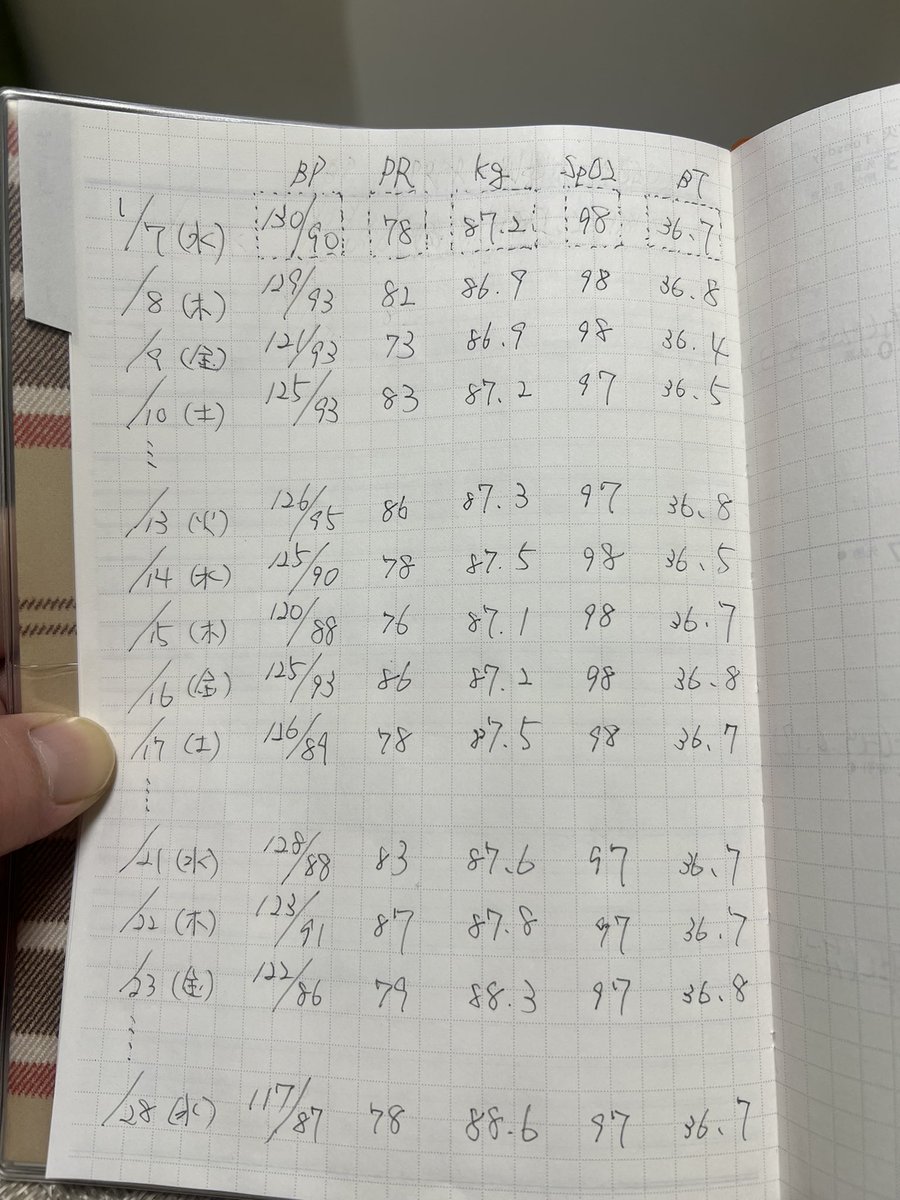 BP PR kg SpO2 BT
1/7 (水) 130/90 78 87.2 98 36.7
/8 (木) 129/93 82 86.9 98 36.8
/9 (金) 121/93 73 86.9 98 36.4
/10 (土) 125/93 83 87.2 97 36.5
/13 (火) 126/95 86 87.3 97 36.8
/14 (水) 125/90 78 87.5 98 36.5
/15 (木) 120/88 76 87.1 98 36.7
/16 (金) 125/93 86 87.2 98 36.8
/17 (土) 116/89 78 87.5 98 36.7
/21 (水) 128/88 83 87.6 97 36.7
/22 (木) 123/91 87 87.8 97 36.7
/23 (金) 122/86 79 88.3 97 36.8
/28 (水) 117/87 78 88.6 97 36.7